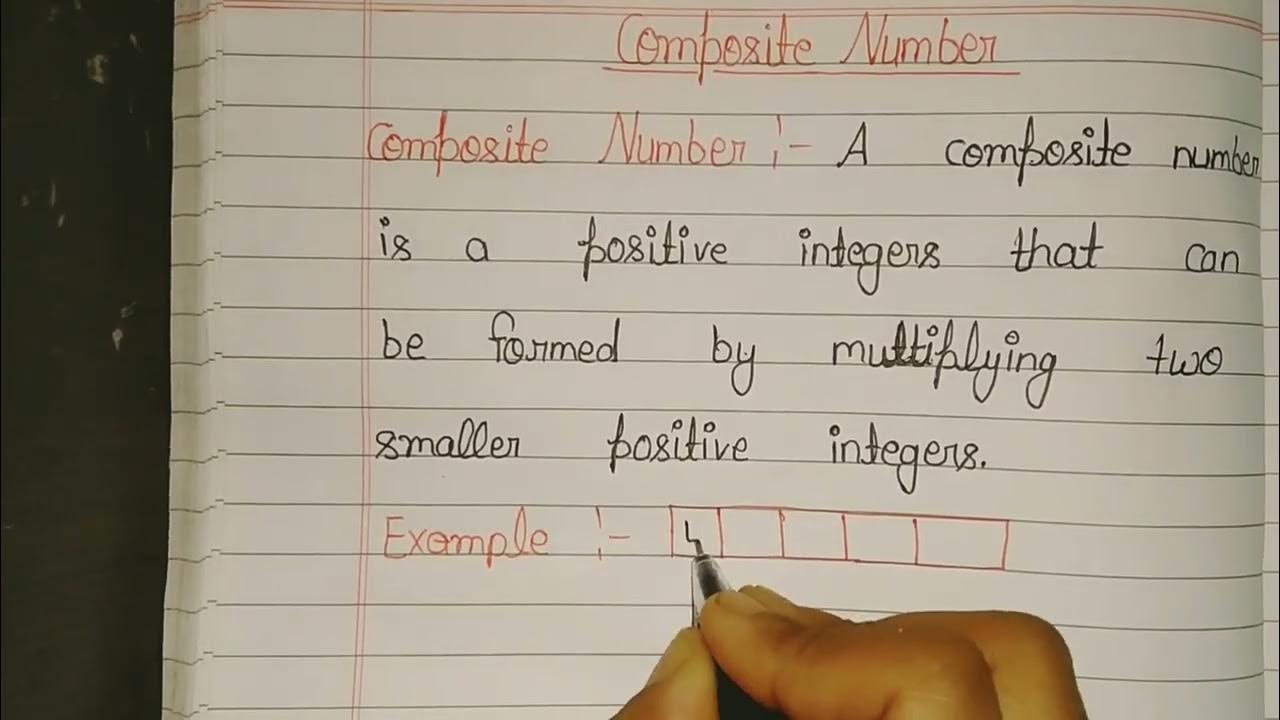 Composite Number
Composite Number :- A composite number
is a positive integers that can
be formed by multiplying two
smaller positive integers.
Example :-